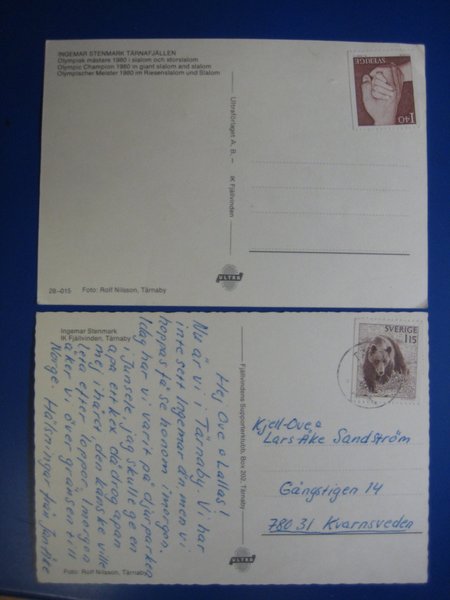 INGEMAR STENMARK TÄRNAFJÄLLEN
Olympisk mästare 1980 i slalom och storslalom
Olympic Champion 1980 in giant slalom and slalom
Olympischer Meister 1980 im Riesenslalom und Slalom
Ultraförlaget A. B. – IK Fjällvinden
1.40
SVERIGE
ULTRA
28–015 Foto: Rolf Nilsson, Tärnaby
Ingemar Stenmark
IK Fjällvinden, Tärnaby
Hej Ove o Lallas!
Nu är vi i Tärnaby. Vi har
inte sett Ingemar än men vi
hoppas få se honom i morgon.
Idag har vi varit på djurparken
i Junsele, jag skulle ge en
apa ett kex, då drog apan
mej i håret, den kanske ville
leta efter loppor, i morgon
åker vi över gränsen till
Norge. Hälsningar från Jan Åke
Foto: Rolf Nilsson, Tärnaby
Fjällvindens Supporterklubb, Box 202, Tärnaby
ULTRA
SVERIGE
1.15
Kjell-Ove o
Lars Åke Sandström
Gångstigen 14
780 31 Kvarnsveden